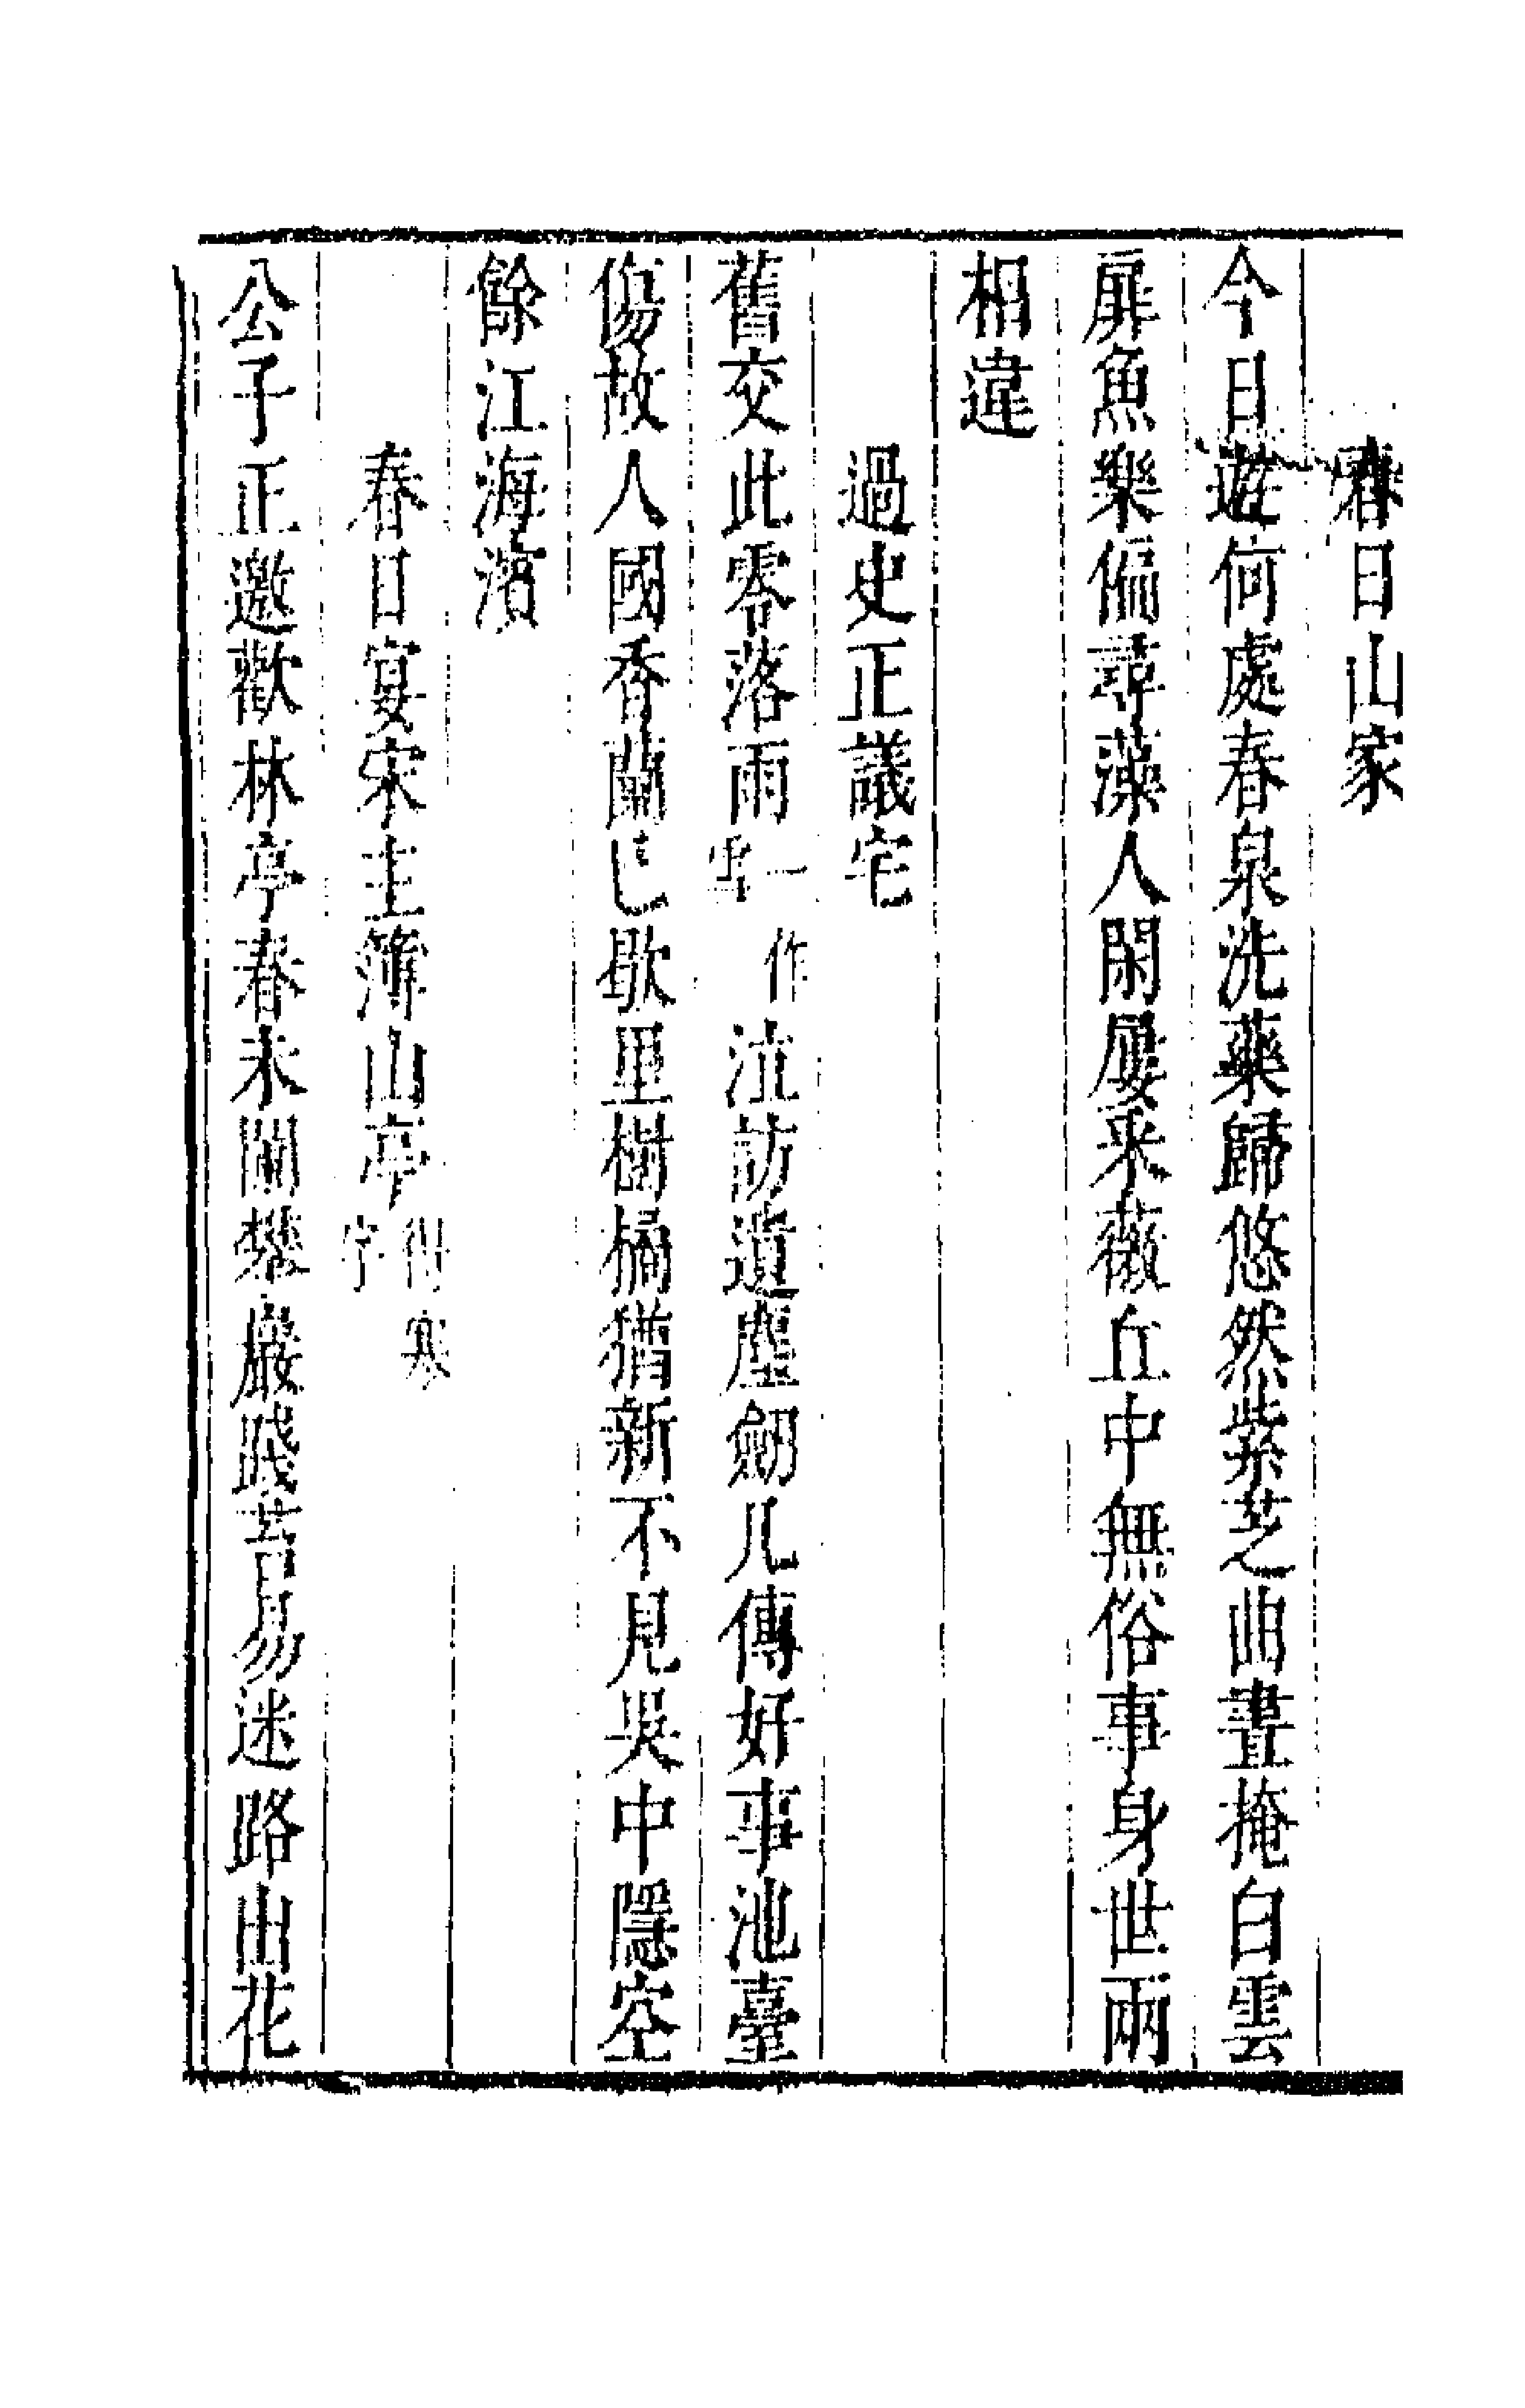 春日山家
今日遊何處春泉洗藥歸悠然紫芝曲晝掩白雲
扉魚樂偏尋藻人閑屢采薇丘中無俗事身世兩
相違
過史正議宅
舊交此零落雨一作雪泣訪遺塵劒几傳好事池臺
傷故人國香蘭已歇里樹橘猶新不見吳中隱空
餘江海濱
春日宴宋主簿山亭得寒字
公子正邀歡林亭春未闌攀巖踐苔易迷路出花